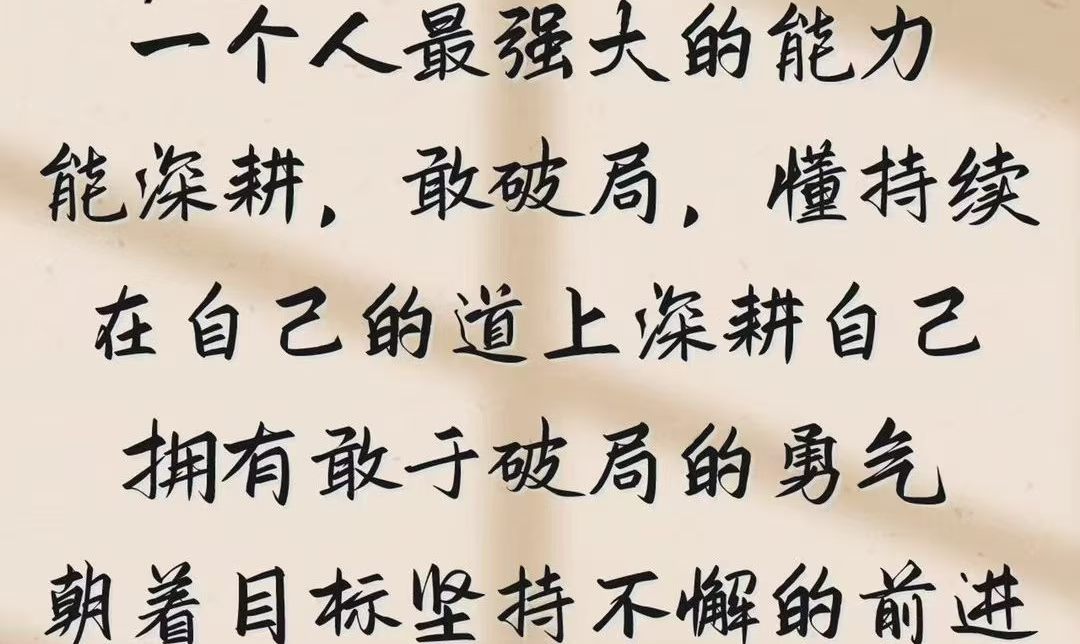 一个人最强大的能力
能深耕，敢破局，懂持续
在自己的道上深耕自己
拥有敢于破局的勇气
朝着目标坚持不懈的前进